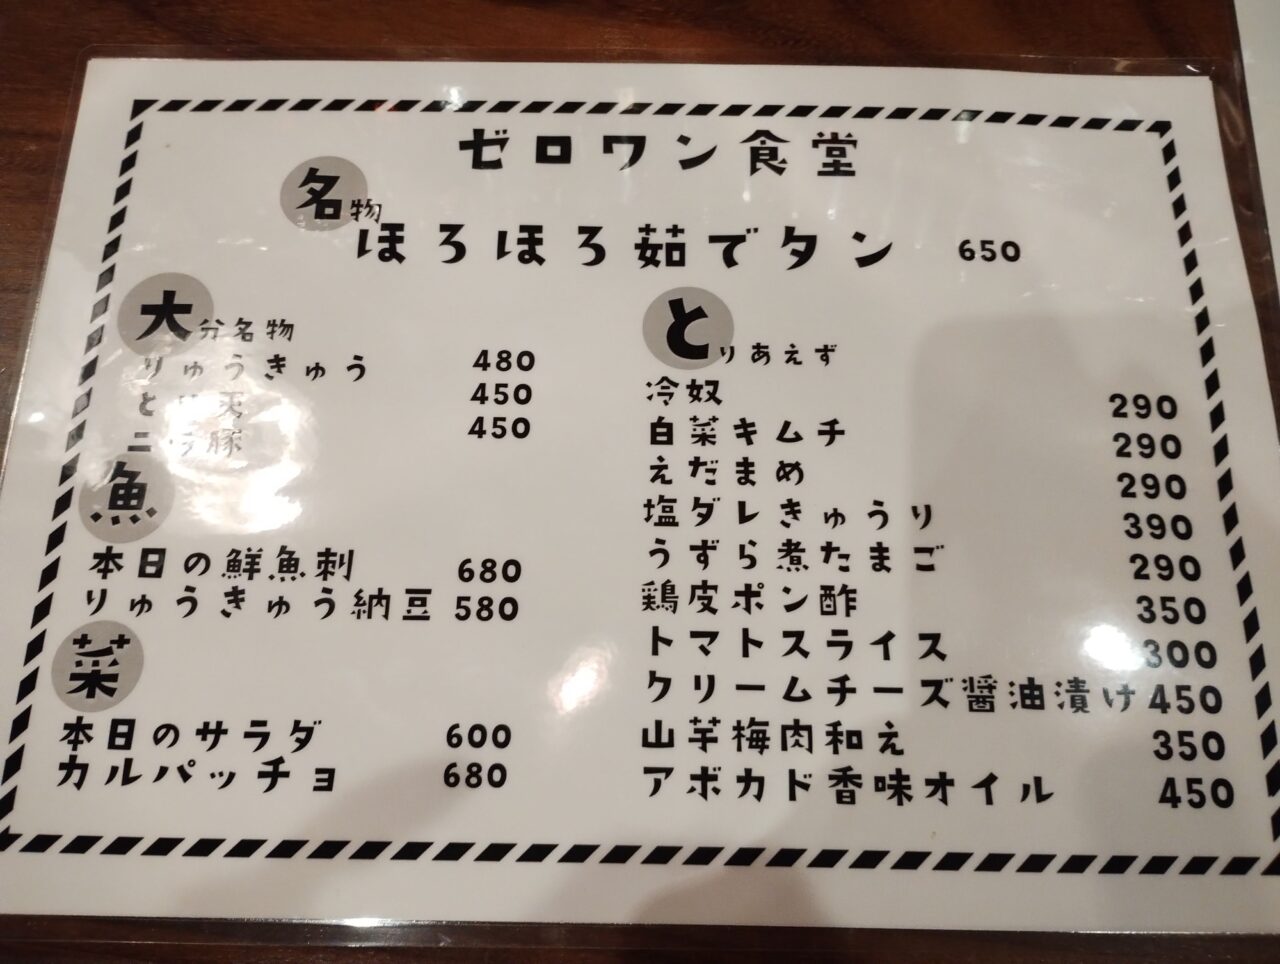 ゼロワン食堂
名物
ほろほろ茹でタン 650
大分名物
りゅうきゅう 480
とり天 450
ニラ豚 450
魚
本日の鮮魚刺 680
りゅうきゅう納豆 580
菜
本日のサラダ 600
カルパッチョ 680
とりあえず
冷奴 290
白菜キムチ 290
えだまめ 290
塩ダレきゅうり 390
うずら煮たまご 290
鶏皮ポン酢 350
トマトスライス 300
クリームチーズ醤油漬け 450
山芋梅肉和え 350
アボカド香味オイル 450